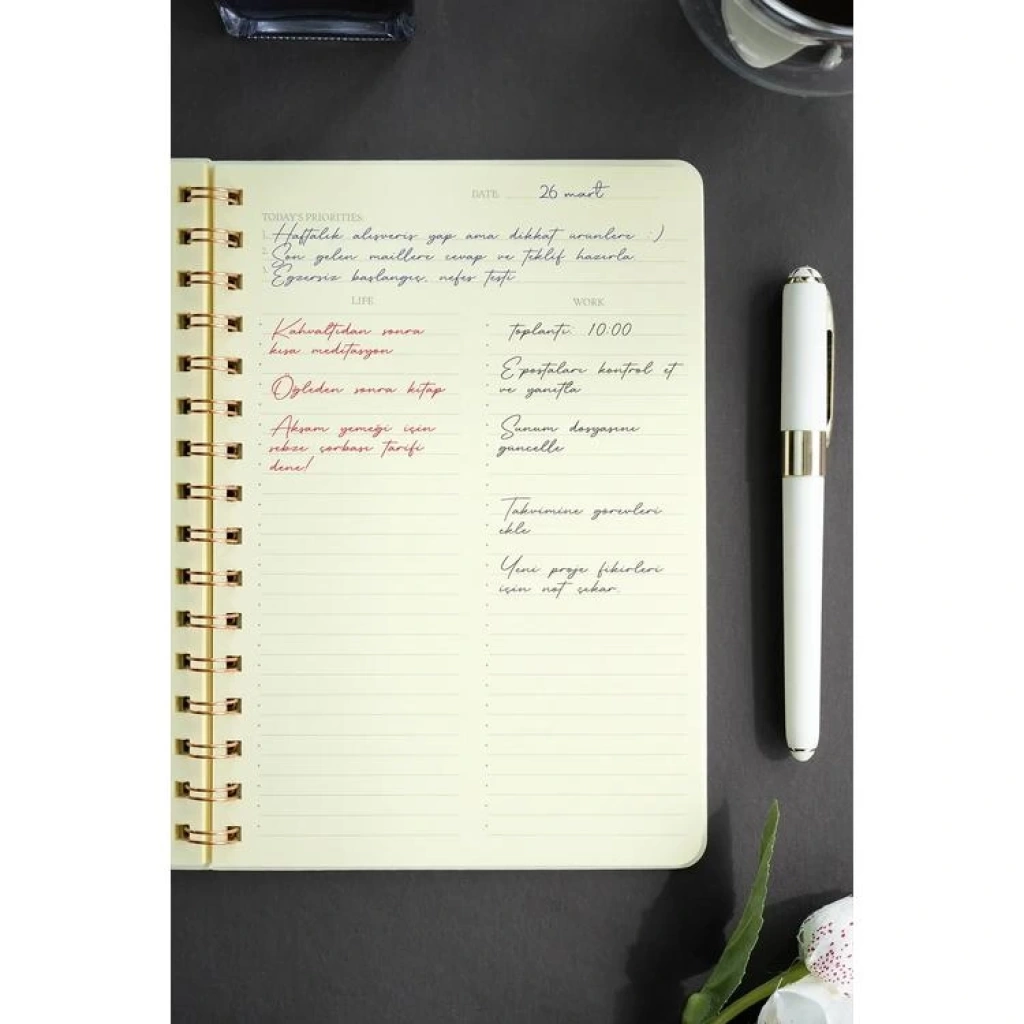 DATE 26 mart
TODAY'S PRIORITIES:
1. Haftalık alışveriş yap ama dikkat ürünlere :)
2. Son gelen maillere cevap ve teklif hazırla
3. Egzersiz başlangıç, nefes testi
LIFE
Kahvaltıdan sonra
kısa meditasyon
Öğleden sonra kitap
Akşam yemeği için
sebze çorbası tarifi
dene!
WORK
toplantı: 10:00
E-postaları kontrol et
ve yanıtla
Sunum dosyasını
güncelle
Takvimine görevleri
ekle
Yeni proje fikirleri
için not çıkar.